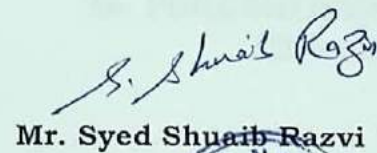 S. Shuaib Razvi
Mr. Syed Shuaib Razvi